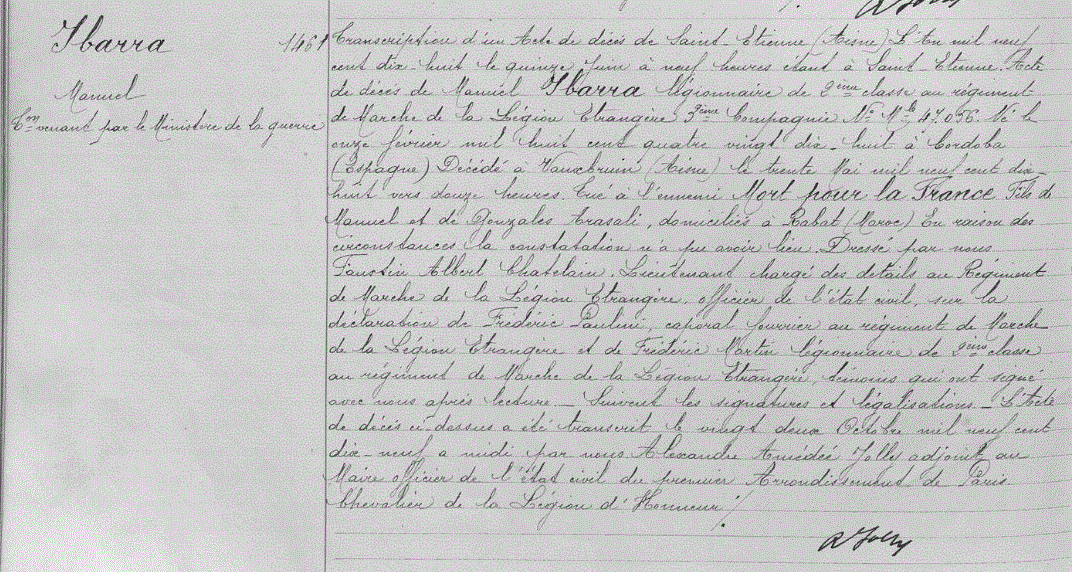 Ibarra
Manuel
Con venant par le Ministère de la guerre
1461
Transcription d'un Acte de décès de Saint-Etienne (Aisne) L'An mil neuf
cent dix-huit le quinze Juin à neuf heures étant à Saint-Etienne. Acte
de décès de Manuel Ibarra légionnaire de 2ème classe au régiment
de Marche de la Légion Etrangère 3ème Compagnie No Mle 47.056. Né le
onze février mil huit cent quatre vingt dix-huit à Cordoba
(Espagne) Décédé à Vauxbruin (Aisne) le trente Mai mil neuf cent dix
huit vers douze heures. Tué à l'ennemi Mort pour la France Fils de
Manuel et de Gonzales Arasali, domiciliés à Rabat (Maroc) En raison des
circonstances la constatation n'a pu avoir lieu. Dressé par nous
Faustin Albert Chatelain, Lieutenant chargé des détails au Régiment
de Marche de la Légion Etrangère, officier de l'état civil, sur la
déclaration de Frédéric Paulini, caporal fourrier au régiment de Marche
de la Légion Etrangère et de Frédéric Martin légionnaire de 2ème classe
au régiment de Marche de la Légion Etrangère, témoins qui ont signé
avec nous après lecture _ Suivent les signatures et légalisations _ L'Acte
de décès ci-dessus a été transcrit le vingt deux Octobre mil neuf cent
dix-neuf a midi par nous Alexandre Amédée Jolly adjoint au
Maire officier de l'état civil du premier Arrondissement de Paris
Chevalier de la Légion d'Honneur /.
A Jolly